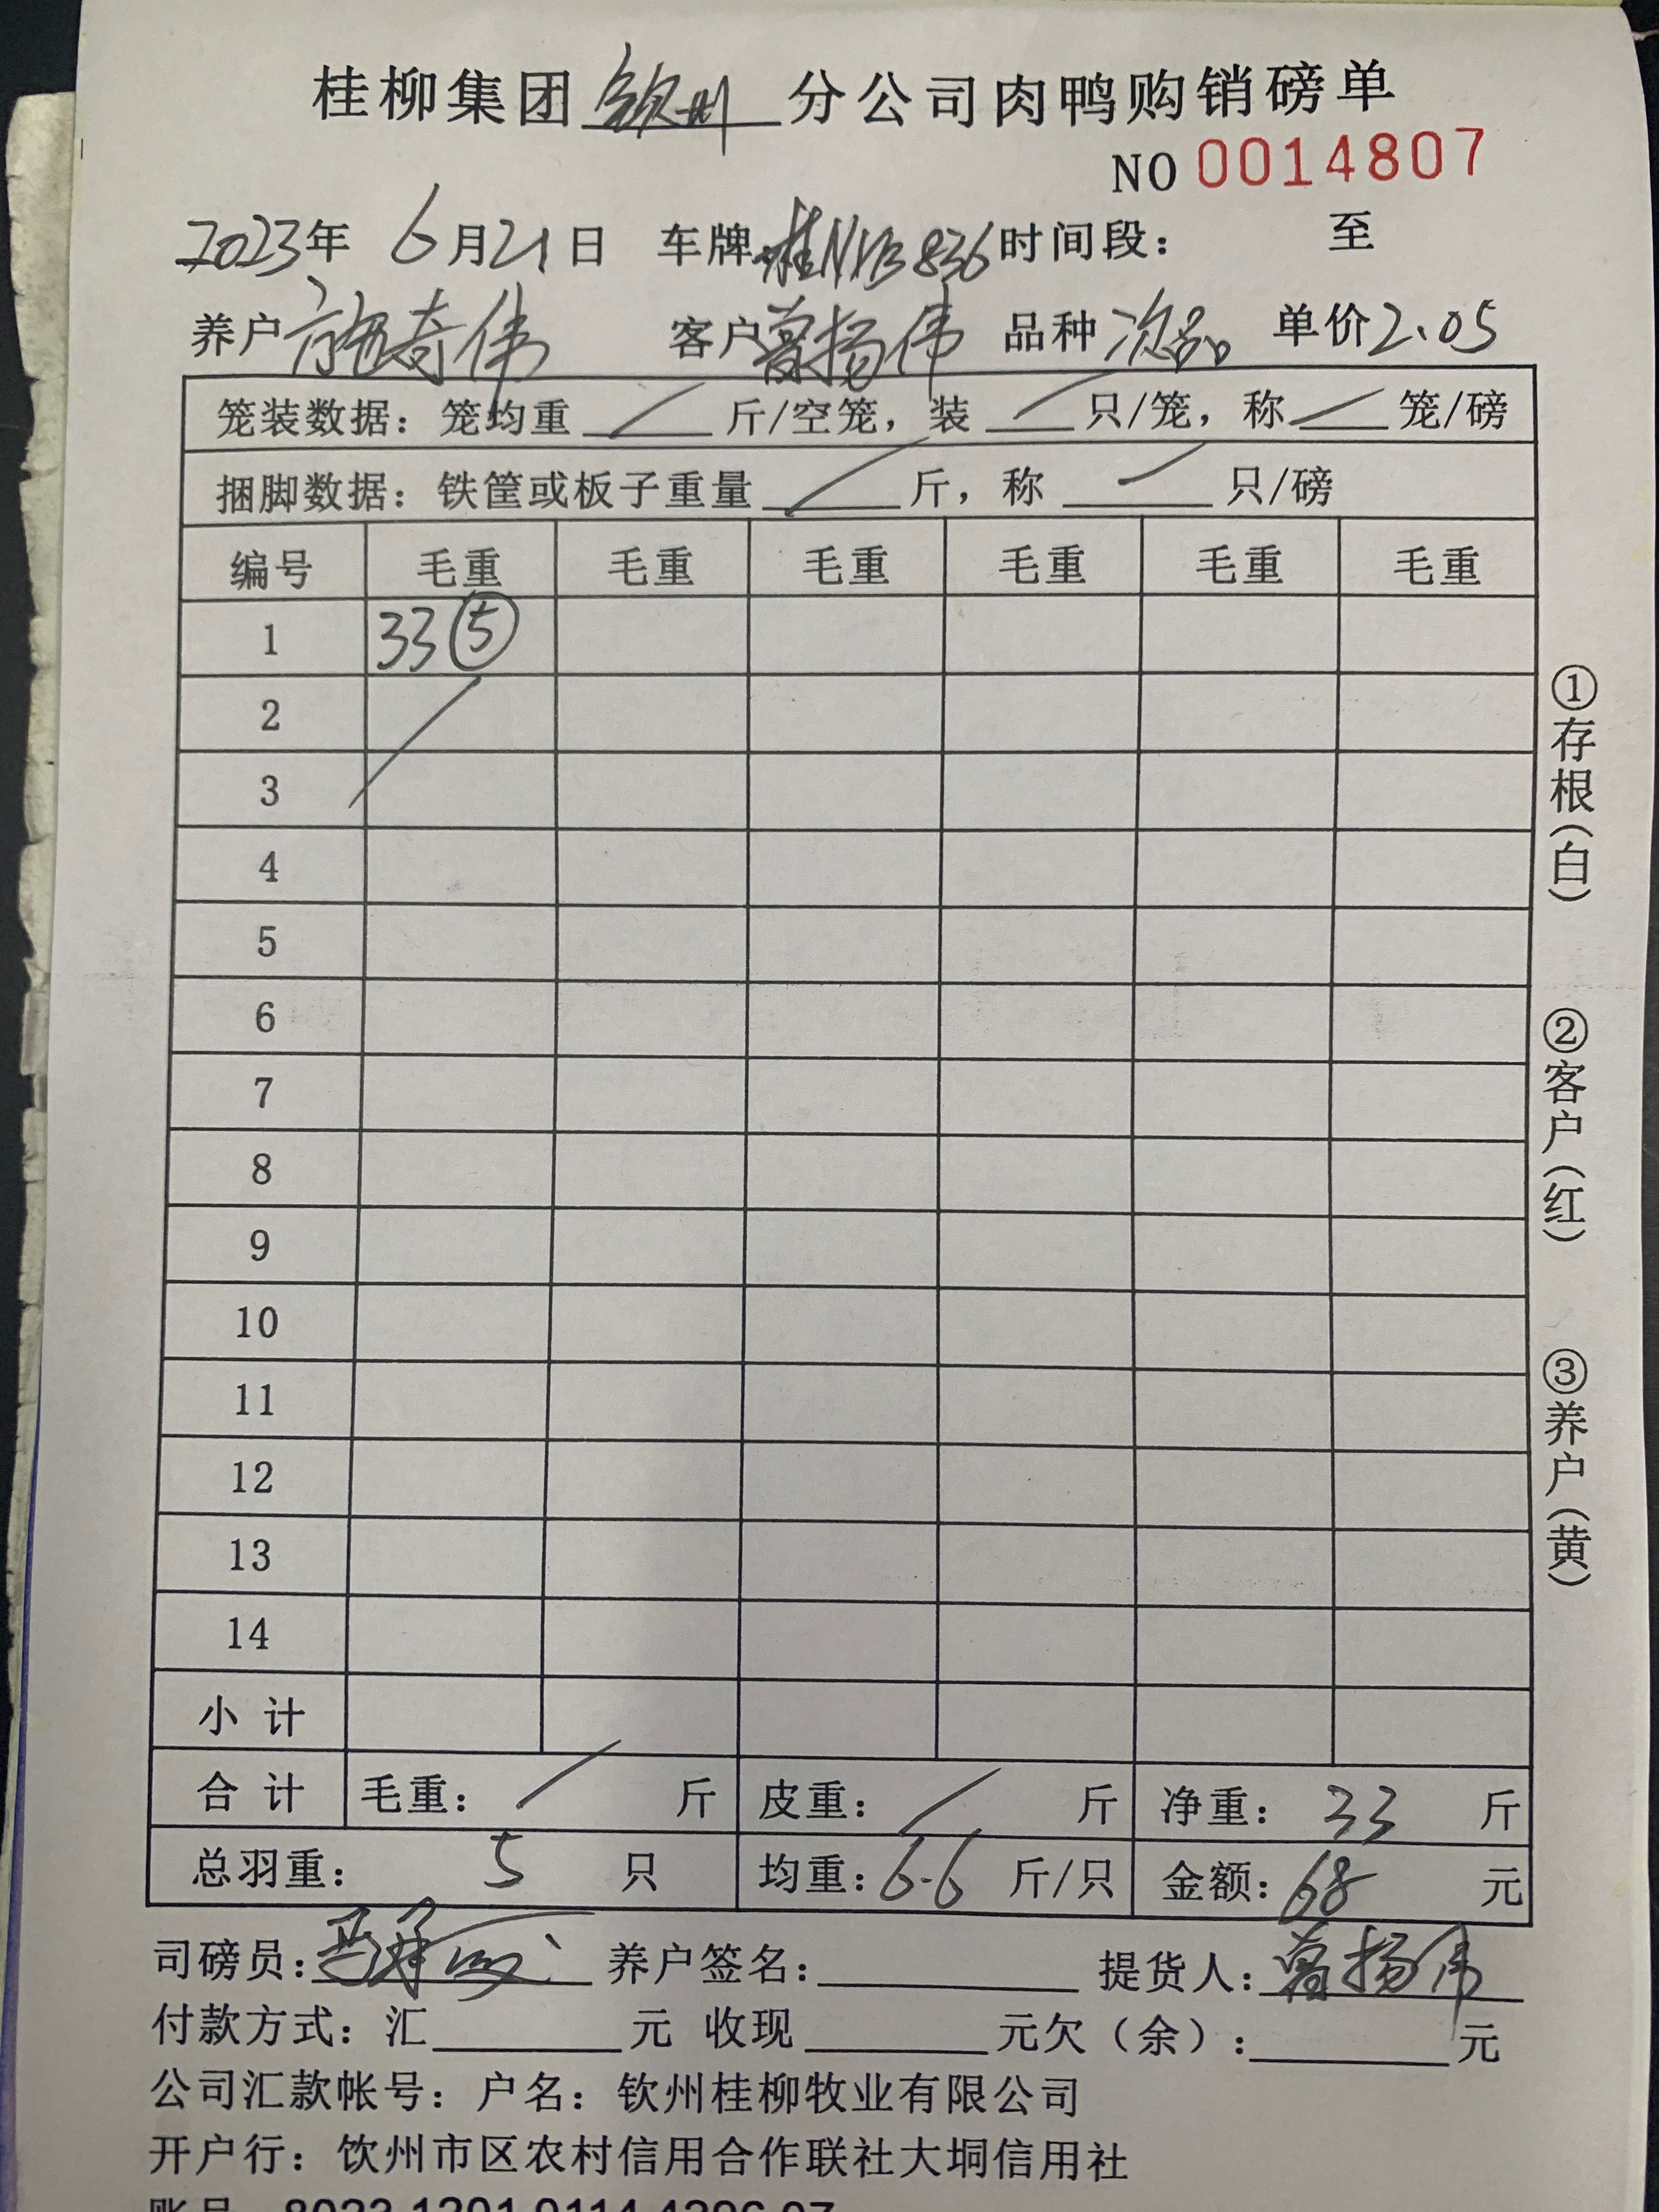 桂柳集团钦州分公司肉鸭购销磅单
NO 0014807
2023年 6月21日 车牌桂NYB836时间段： 至
养户施奇伟 客户曾扬伟 品种次品 单价2.05
笼装数据：笼均重 / 斤/空笼，装 / 只/笼，称 / 笼/磅
捆脚数据：铁筐或板子重量 / 斤，称 / 只/磅
编号 毛重 毛重 毛重 毛重 毛重 毛重
1 33⑤
2
3
4
5
6
7
8
9
10
11
12
13
14
小计
合计 毛重： / 斤 皮重： / 斤 净重：33 斤
总羽重：5 只 均重：6.6 斤/只 金额：68 元
司磅员： 养户签名： 提货人：曾扬伟
付款方式：汇 元 收现 元欠（余）： 元
公司汇款帐号：户名：钦州桂柳牧业有限公司
开户行：钦州市区农村信用合作联社大垌信用社
①存根（白）
②客户（红）
③养户（黄）